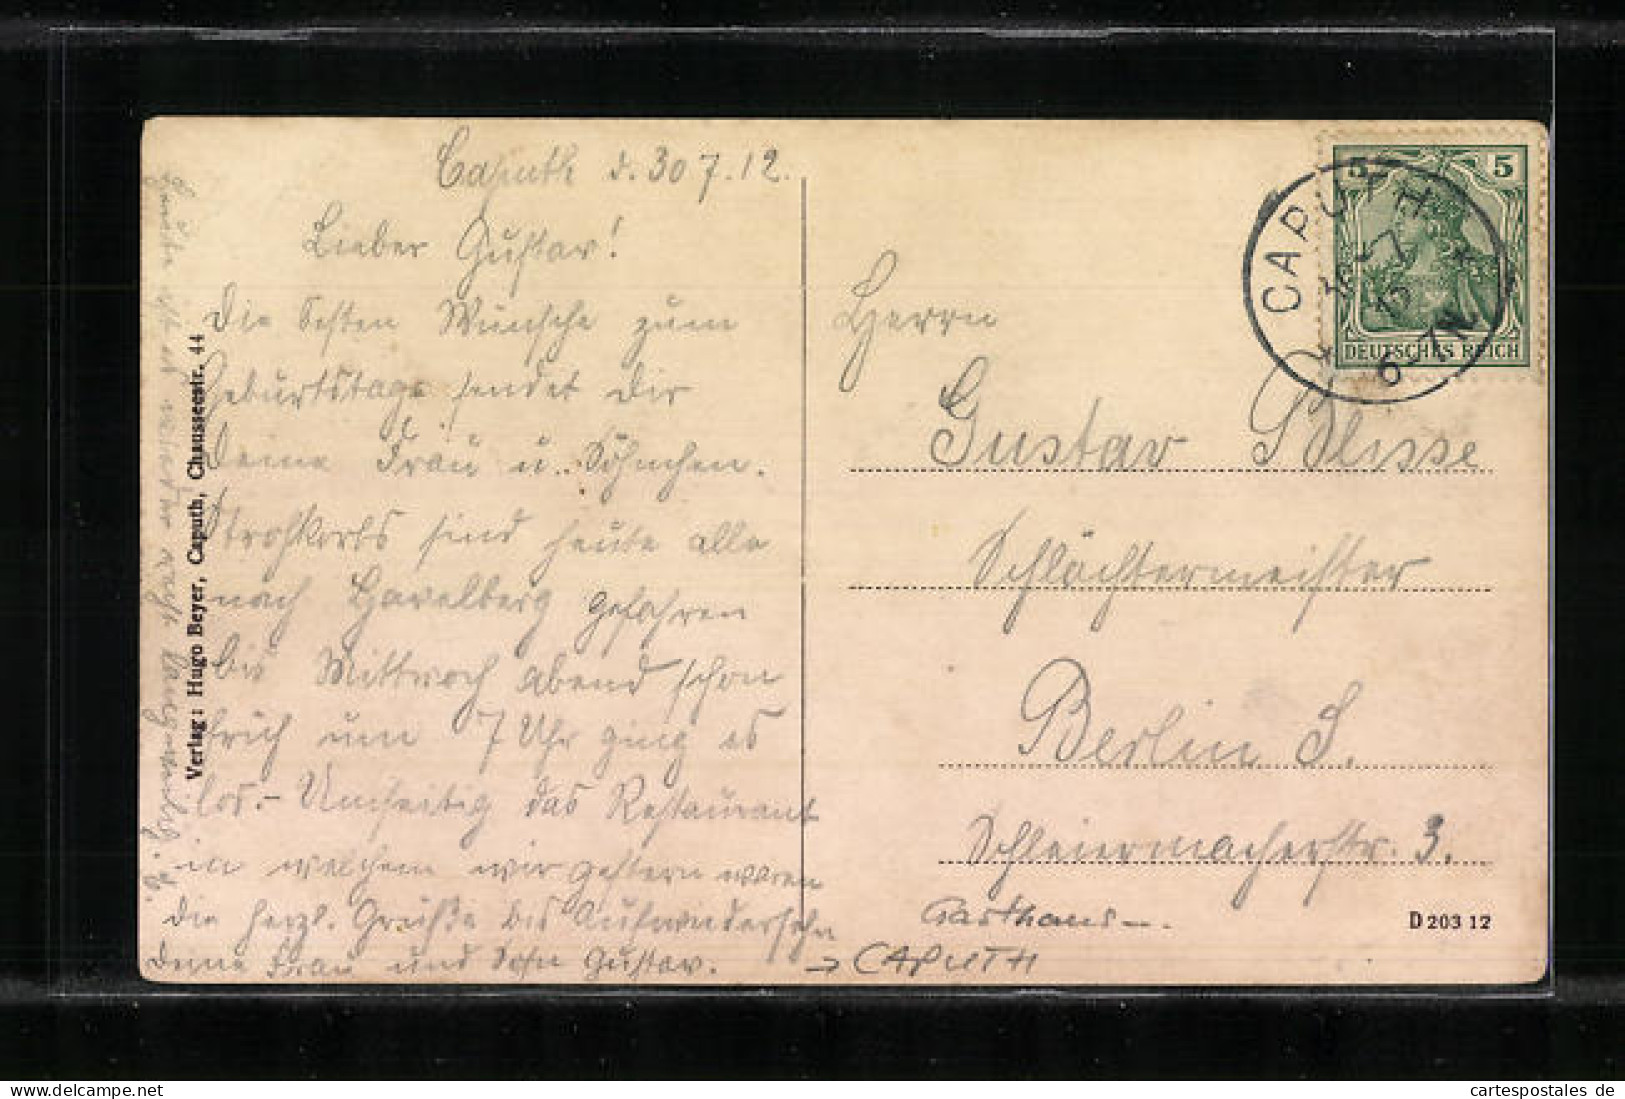 Caputh d. 30 7. 12.
Lieber Gustav!
Die besten Wünsche zum
Geburtstage sendet Dir
Deine Frau u. Söhnchen.
Strohkorbs sind heute alle
nach Havelberg gefahren
bis Mittwoch abend schon
früh um 7 Uhr ging es
los.- Umseitig das Restaurant
in welchem wir gestern waren
die herzl. Grüße bis Aufwiedersehn
Deine Frau und Sohn Gustav.
ist es
Verlag: Hugo Beyer, Caputh, Chausseestr. 44
5 5
DEUTSCHES REICH
CAPUTH
30 7
12
6-7N
Herrn
Gustav Blisse
Schlächtermeister
Berlin S.
Schleiermacherstr. 3.
Gasthaus-.
→ CAPUTH
D 203 12
www.delcampe.net
cartespostales de